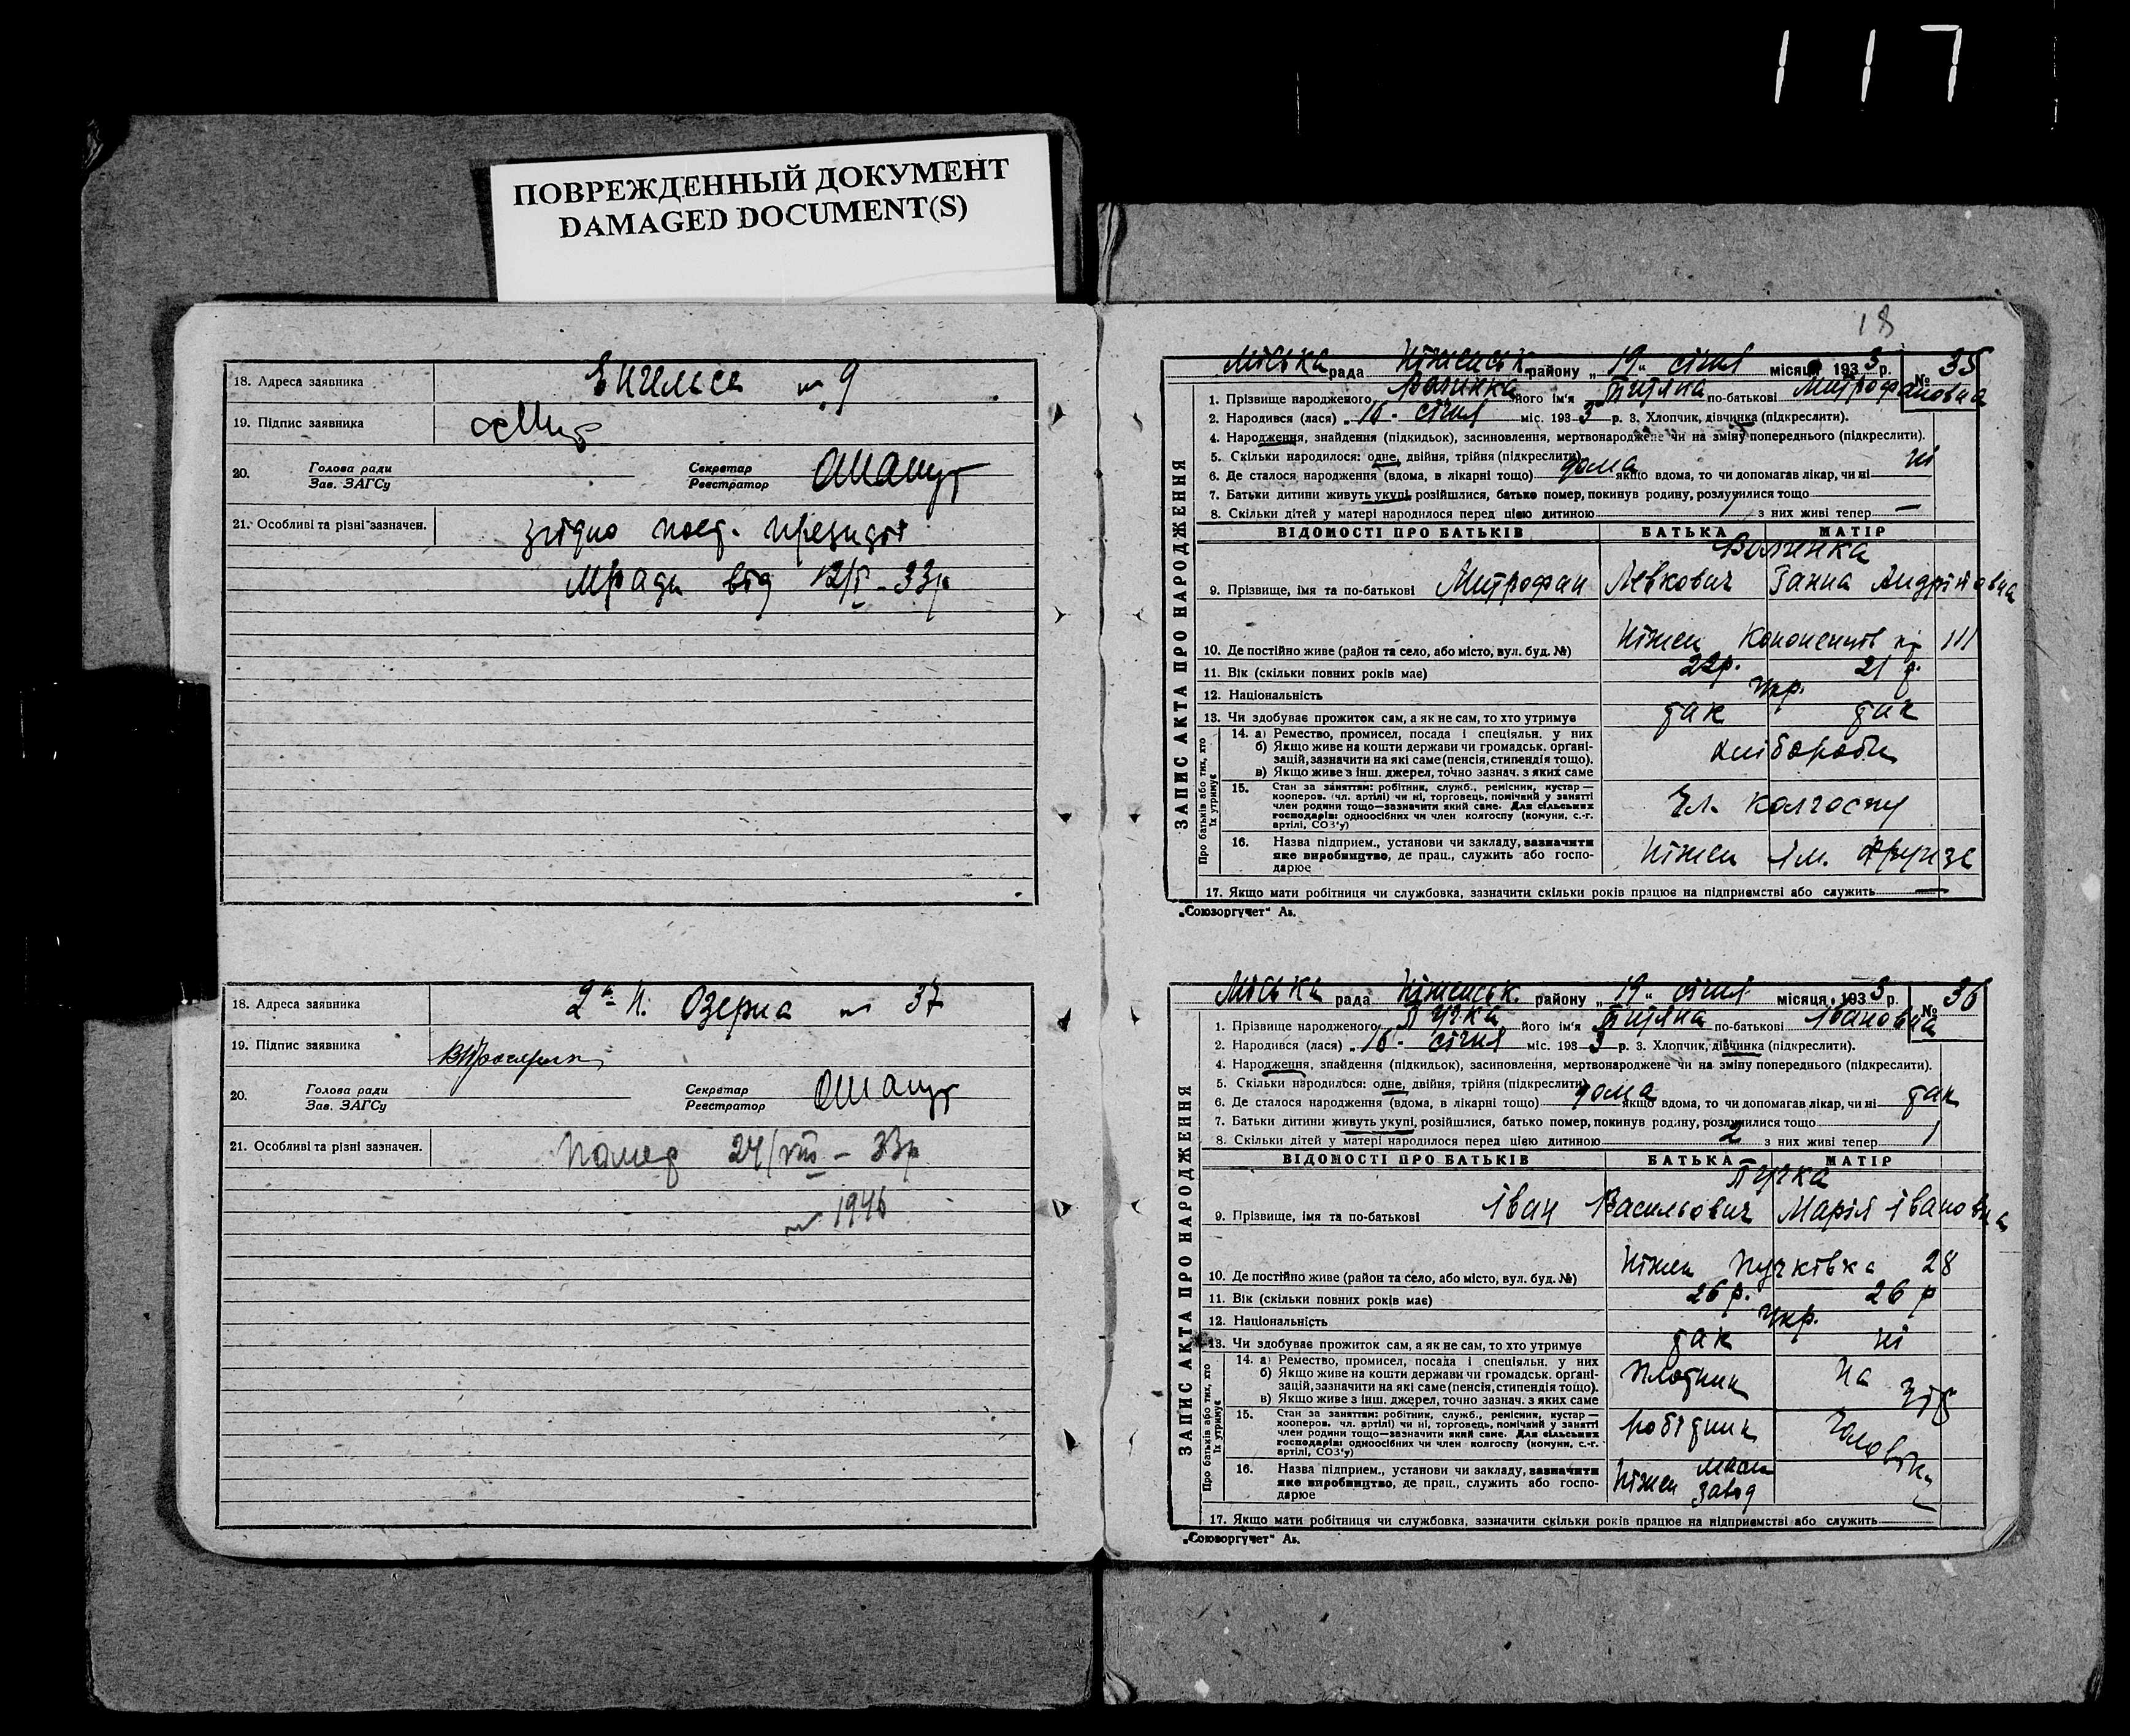 117
ПОВРЕЖДЕННЫЙ ДОКУМЕНТ
DAMAGED DOCUMENT(S)
18. Адреса заявника Енгельса № 9
19. Підпис заявника
20. Голова ради Зав. ЗАГСу Секретар Реєстратор
21. Особливі та різні зазначен. згідно пост. президії
Мради від 12/I - 33р
18. Адреса заявника 2а Н. Озерна № 37
19. Підпис заявника
20. Голова ради Зав. ЗАГСу Секретар Реєстратор
21. Особливі та різні зазначен. Помер 24/VIII - 33р
№ 1946
18
Міська рада Ніженськ. району „19“ січня місяця 1933 р. № 35
ЗАПИС АКТА ПРО НАРОДЖЕННЯ
1. Прізвище народженого Волинка його ім'я по-батькові Митрофановна
2. Народився (лася) „16 - січня міс. 1933 р. 3. Хлопчик, дівчинка (підкреслити).
4. Народження, знайдення (підкидьок), засиновлення, мертвонароджене чи на зміну попереднього (підкреслити).
5. Скільки народилося: одне, двійня, трійня (підкреслити)
6. Де сталося народження (вдома, в лікарні тощо) дома якщо вдома, то чи допомагав лікар, чи ні ні
7. Батьки дитини живуть укупі, розійшлися, батько помер, покинув родину, розлучилися тощо
8. Скільки дітей у матері народилося перед цією дитиною / з них живі тепер —
ВІДОМОСТІ ПРО БАТЬКІВ БАТЬКА МАТІР
Волинка
9. Прізвище, імя та по-батькові Митрофан Левкович Ганна Андріївна
10. Де постійно живе (район та село, або місто, вул. буд. №) Ніжен 111
11. Вік (скільки повних років має) 22р. 21 р.
12. Національність Укр.
13. Чи здобуває прожиток сам, а як не сам, то хто утримує так так
Про батьків або тих, хто їх утримує
14. а) Ремество, промисел, посада і спеціяльн. у них
б) Якщо живе на кошти держави чи громадськ. органі-
зацій, зазначити на які саме (пенсія, стипендія тощо).
в) Якщо живе з інш. джерел, точно зазнач. з яких саме
хлібороби
15. Стан за заняттям: робітник, служб., ремісник, кустар —
кооперов. (чл. артілі) чи ні, торговець, помічний у занятті
член родини тощо—зазначити який саме. Для сільських
господарів: одноосібних чи член колгоспу (комуни, с.-г.
артілі, СОЗ'у)
Чл. колгоспу
16. Назва підприєм., установи чи закладу, зазначити
яке виробництво, де прац., служить або госпо-
дарює
Ніжен ім. Фрунзе
17. Якщо мати робітниця чи службовка, зазначити скільки років працює на підприємстві або служить —
„Союзоргучет“ Ав.
Міська рада Ніженськ. району „19“ січня місяця 1933 р. № 36
ЗАПИС АКТА ПРО НАРОДЖЕННЯ
1. Прізвище народженого Пучка його ім'я по-батькові Івановна
2. Народився (лася) „16 - січня міс. 1933 р. 3. Хлопчик, дівчинка (підкреслити).
4. Народження, знайдення (підкидьок), засиновлення, мертвонароджене чи на зміну попереднього (підкреслити).
5. Скільки народилося: одне, двійня, трійня (підкреслити)
6. Де сталося народження (вдома, в лікарні тощо) дома якщо вдома, то чи допомагав лікар, чи ні так
7. Батьки дитини живуть укупі, розійшлися, батько помер, покинув родину, розлучилися тощо
8. Скільки дітей у матері народилося перед цією дитиною 2 з них живі тепер 1
ВІДОМОСТІ ПРО БАТЬКІВ БАТЬКА МАТІР
Пучка
9. Прізвище, імя та по-батькові Іван Васильович Марія Івановна
10. Де постійно живе (район та село, або місто, вул. буд. №) Ніжен Пучківка 28
11. Вік (скільки повних років має) 26 р. 26 р
12. Національність Укр.
13. Чи здобуває прожиток сам, а як не сам, то хто утримує так ні
Про батьків або тих, хто їх утримує
14. а) Ремество, промисел, посада і спеціяльн. у них
б) Якщо живе на кошти держави чи громадськ. органі-
зацій, зазначити на які саме (пенсія, стипендія тощо).
в) Якщо живе з інш. джерел, точно зазнач. з яких саме
плотник на
15. Стан за заняттям: робітник, служб., ремісник, кустар —
кооперов. чл. артілі) чи ні, торговець, помічний у занятті
член родини тощо—зазначити який саме. Для сільських
господарів: одноосібних чи член колгоспу (комуни, с.-г.
артілі, СОЗ'у)
робітник чоловіка
16. Назва підприєм., установи чи закладу, зазначити
яке виробництво, де прац., служить або госпо-
дарює
Ніжен завод
17. Якщо мати робітниця чи службовка, зазначити скільки років працює на підприємстві або служить
„Союзоргучет“ Ав.